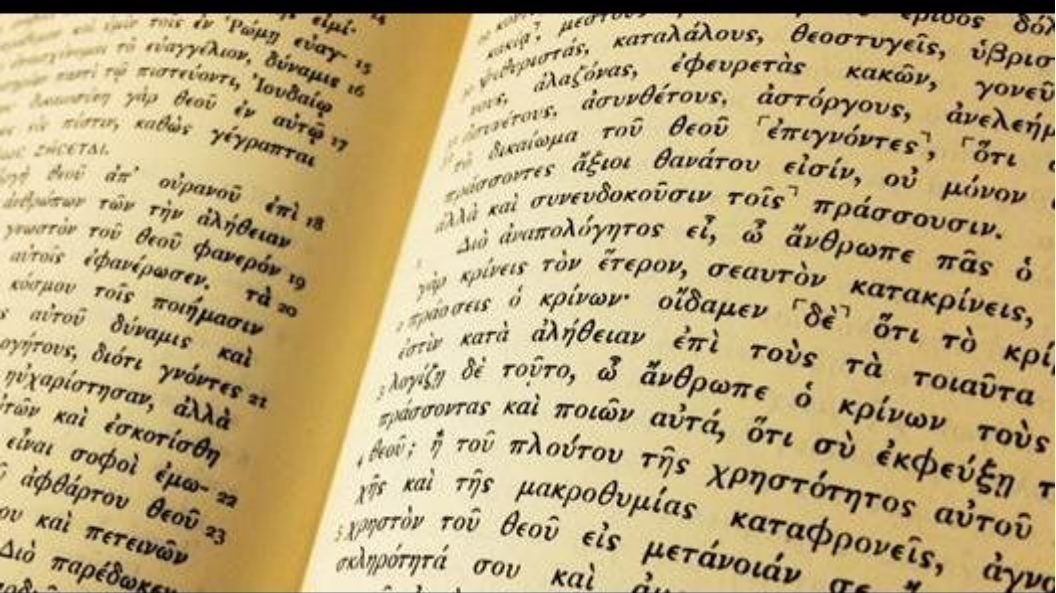 εἰμί· 14
καὶ ὑμῖν τοῖς ἐν Ῥώμῃ εὐαγ- 15
τὸ εὐαγγέλιον, δύναμις 16
παντὶ τῷ πιστεύοντι, Ἰουδαίῳ
γὰρ θεοῦ ἐν αὐτῷ 17
πίστιν, καθὼς γέγραπται
ΖΗΣΕΤΑΙ.
θεοῦ ἀπ' οὐρανοῦ ἐπὶ 18
ἀνθρώπων τῶν τὴν ἀλήθειαν
γνωστὸν τοῦ θεοῦ φανερόν 19
αὐτοῖς ἐφανέρωσεν. τὰ 20
κόσμου τοῖς ποιήμασιν
αὐτοῦ δύναμις καὶ
διότι γνόντες 21
ηὐχαρίστησαν, ἀλλὰ
καὶ ἐσκοτίσθη
εἶναι σοφοὶ ἐμω- 22
ἀφθάρτου θεοῦ 23
καὶ πετεινῶν
Διὸ παρέδωκεν
μεστοὺς
κακίᾳ, καταλάλους, θεοστυγεῖς,
ψιθυριστάς, ἀλαζόνας, ἐφευρετὰς κακῶν,
ἀσυνθέτους, ἀστόργους,
δικαίωμα τοῦ θεοῦ ⸂ἐπιγνόντες⸃, ⸀ὅτι
πράσσοντες ἄξιοι θανάτου εἰσίν, οὐ μόνον
ἀλλὰ καὶ συνευδοκοῦσιν τοῖς⸃ πράσσουσιν.
Διὸ ἀναπολόγητος εἶ, ὦ ἄνθρωπε πᾶς ὁ
γὰρ κρίνεις τὸν ἕτερον, σεαυτὸν κατακρίνεις,
2 πράσσεις ὁ κρίνων· οἴδαμεν ⸂δὲ⸃ ὅτι τὸ
ἐστὶν κατὰ ἀλήθειαν ἐπὶ τοὺς τὰ τοιαῦτα
3 λογίζῃ δὲ τοῦτο, ὦ ἄνθρωπε ὁ κρίνων τοὺς
πράσσοντας καὶ ποιῶν αὐτά, ὅτι σὺ ἐκφεύξῃ
4 θεοῦ; ἢ τοῦ πλούτου τῆς χρηστότητος αὐτοῦ
χῆς καὶ τῆς μακροθυμίας καταφρονεῖς,
5 χρηστὸν τοῦ θεοῦ εἰς μετάνοιάν σε
σκληρότητά σου καὶ